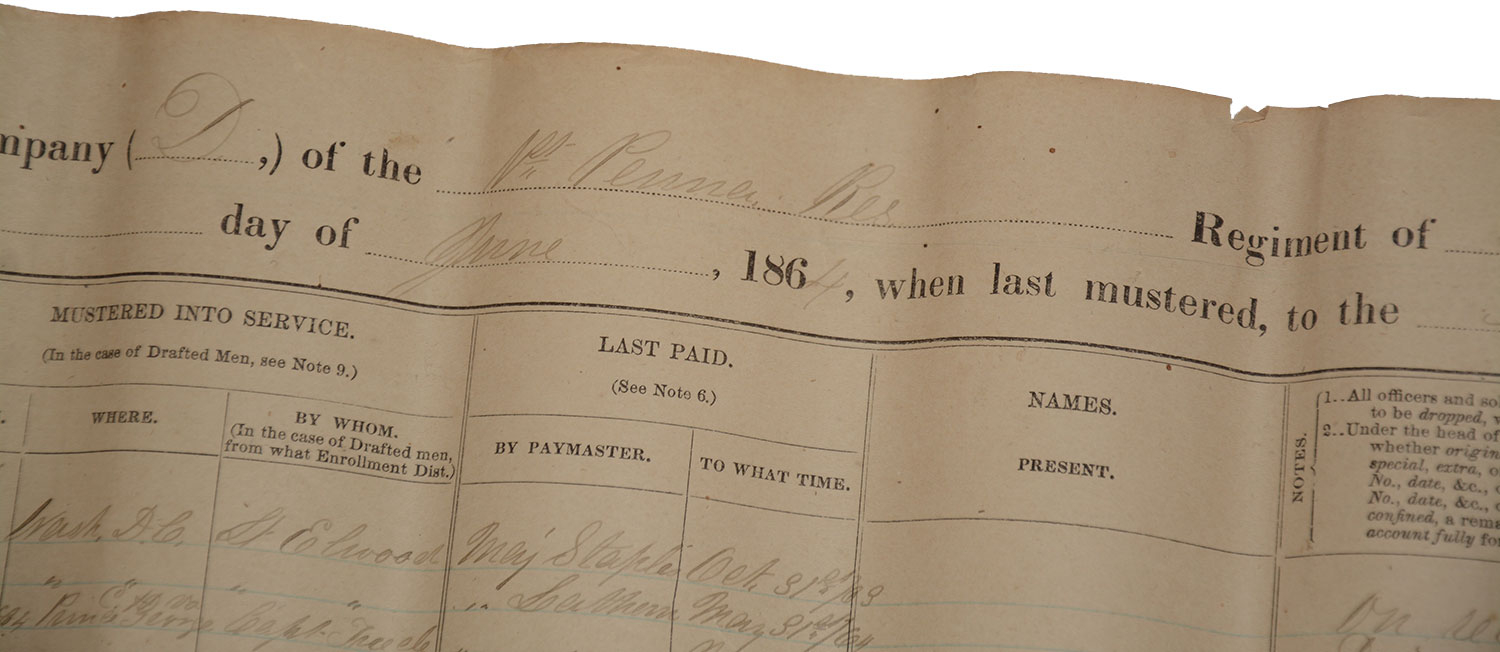 mpany ( D ,) of the 1st Penna. Res Regiment of
day of June , 1864, when last mustered, to the
MUSTERED INTO SERVICE.
(In the case of Drafted Men, see Note 9.)
WHERE.
BY WHOM.
(In the case of Drafted men,
from what Enrollment Dist.)
LAST PAID.
(See Note 6.)
BY PAYMASTER.
TO WHAT TIME.
NAMES.
PRESENT.
NOTES.
1..All officers and so
to be dropped,
2..Under the head of
whether origin
special, extra, o
No., date, &c.,
No., date, &c.,
confined, a rema
account fully fo
Wash, D.C. Lt Elwood Maj Staples Oct 31st/63
" " " " " May 31st/64
Prince George Capt.
On